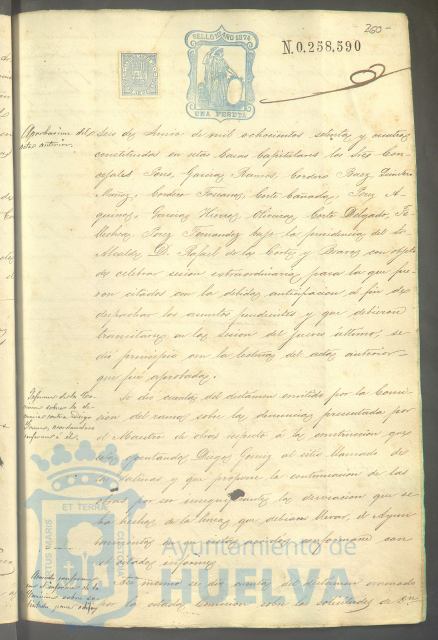 260-
SELLO 11º AÑO 1874
N. 0.258,590
UNA PESETA
Aprobacion del
acta anterior.
Seis de Junio de mil ochocientos setenta y cuatro
constituidos en estas Casas Capitulares los Sres Con-
cejales Garcia Ramos, Cordero Baez
Muñoz, Cordero Toscano, Corte Cañada, Perez
Garcia Corte Delgado,
Perez Fernandez bajo la presidencia del Sr
Alcalde D. Rafael de la Corte y Bravo con objeto
de celebrar sesion extraordinaria para la que
ron citados con la debida anticipacion a fin de
despachar los asuntos pendientes y que debieron
tramitarse en la sesion del jueves ultimo, se
dió principio con la lectura del acta anterior
que fué aprobada.
Informe de la Co-
mision sobre la de-
nuncia contra Diego
Gomez, acordandose
conforme á él.
Se dió cuenta del dictámen emitido por la Comi-
sion del ramo sobre la denuncia presentada por
el Maestro de obras respecto á la construccion que
está ejecutando Diego Gomez al sitio llamado de
las Salinas y que propone la continuacion de las
obras por ser insignificante la desviacion que se
ha hecho de la linea que debia llevar, el Ayun-
tamiento en su vista acordó conformarse con
el citado informe.
Asi mismo se dió cuenta del dictámen evacuado
por la citada Comision sobre la solicitud de
ET TERRA
PORTUS MARIS
CUSTODIA
Ayuntamiento de
HUELVA